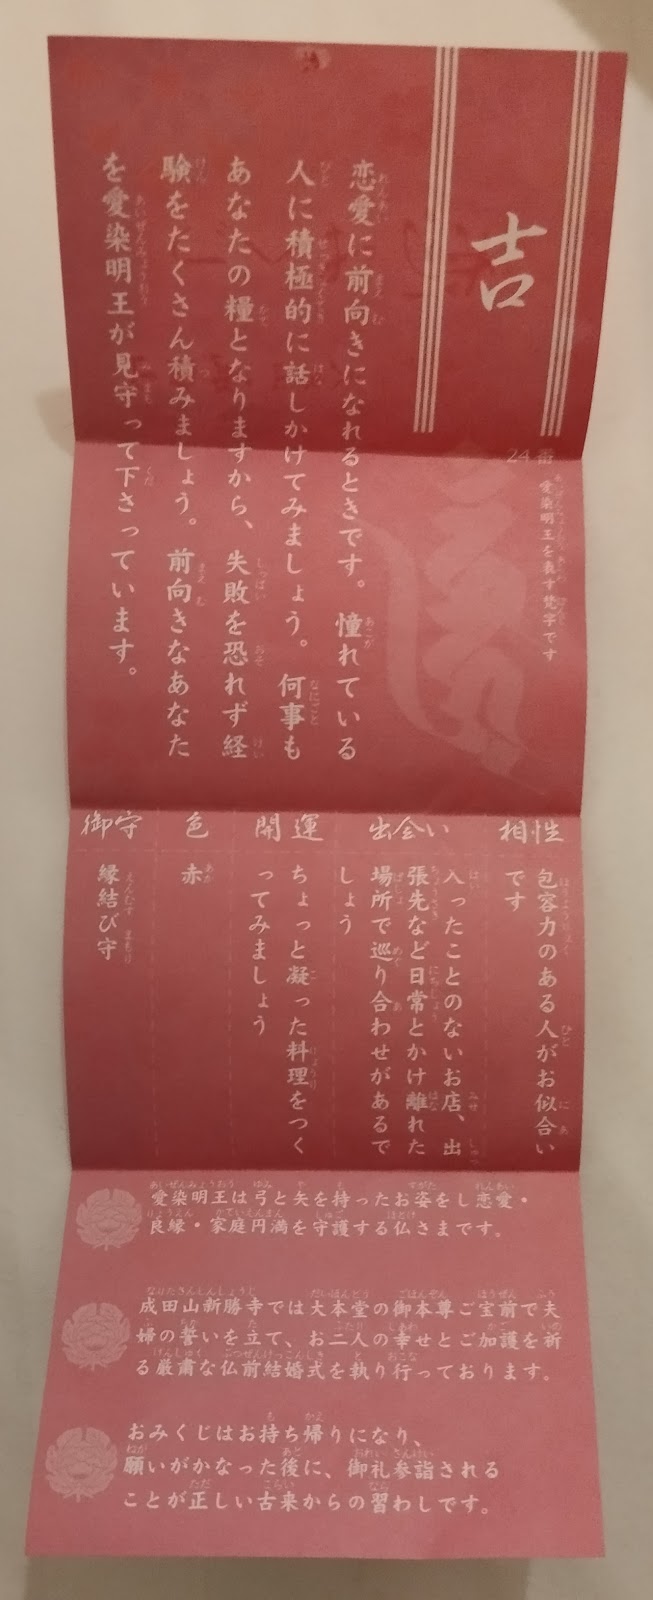 吉
24番
愛染明王を表す梵字です
恋愛に前向きになれるときです。憧れている
人に積極的に話しかけてみましょう。何事も
あなたの糧となりますから、失敗を恐れず経
験をたくさん積みましょう。前向きなあなた
を愛染明王が見守って下さっています。
相性
包容力のある人がお似合い
です
出会い
入ったことのないお店、出
張先など日常とかけ離れた
場所で巡り合わせがあるで
しょう
開運
ちょっと凝った料理をつく
ってみましょう
色
赤
御守
縁結び守
愛染明王は弓と矢を持ったお姿をし恋愛・
良縁・家庭円満を守護する仏さまです。
成田山新勝寺では大本堂の御本尊ご宝前で夫
婦の誓いを立て、お二人の幸せとご加護を祈
る厳粛な仏前結婚式を執り行っております。
おみくじはお持ち帰りになり、
願いがかなった後に、御礼参詣される
ことが正しい古来からの習わしです。